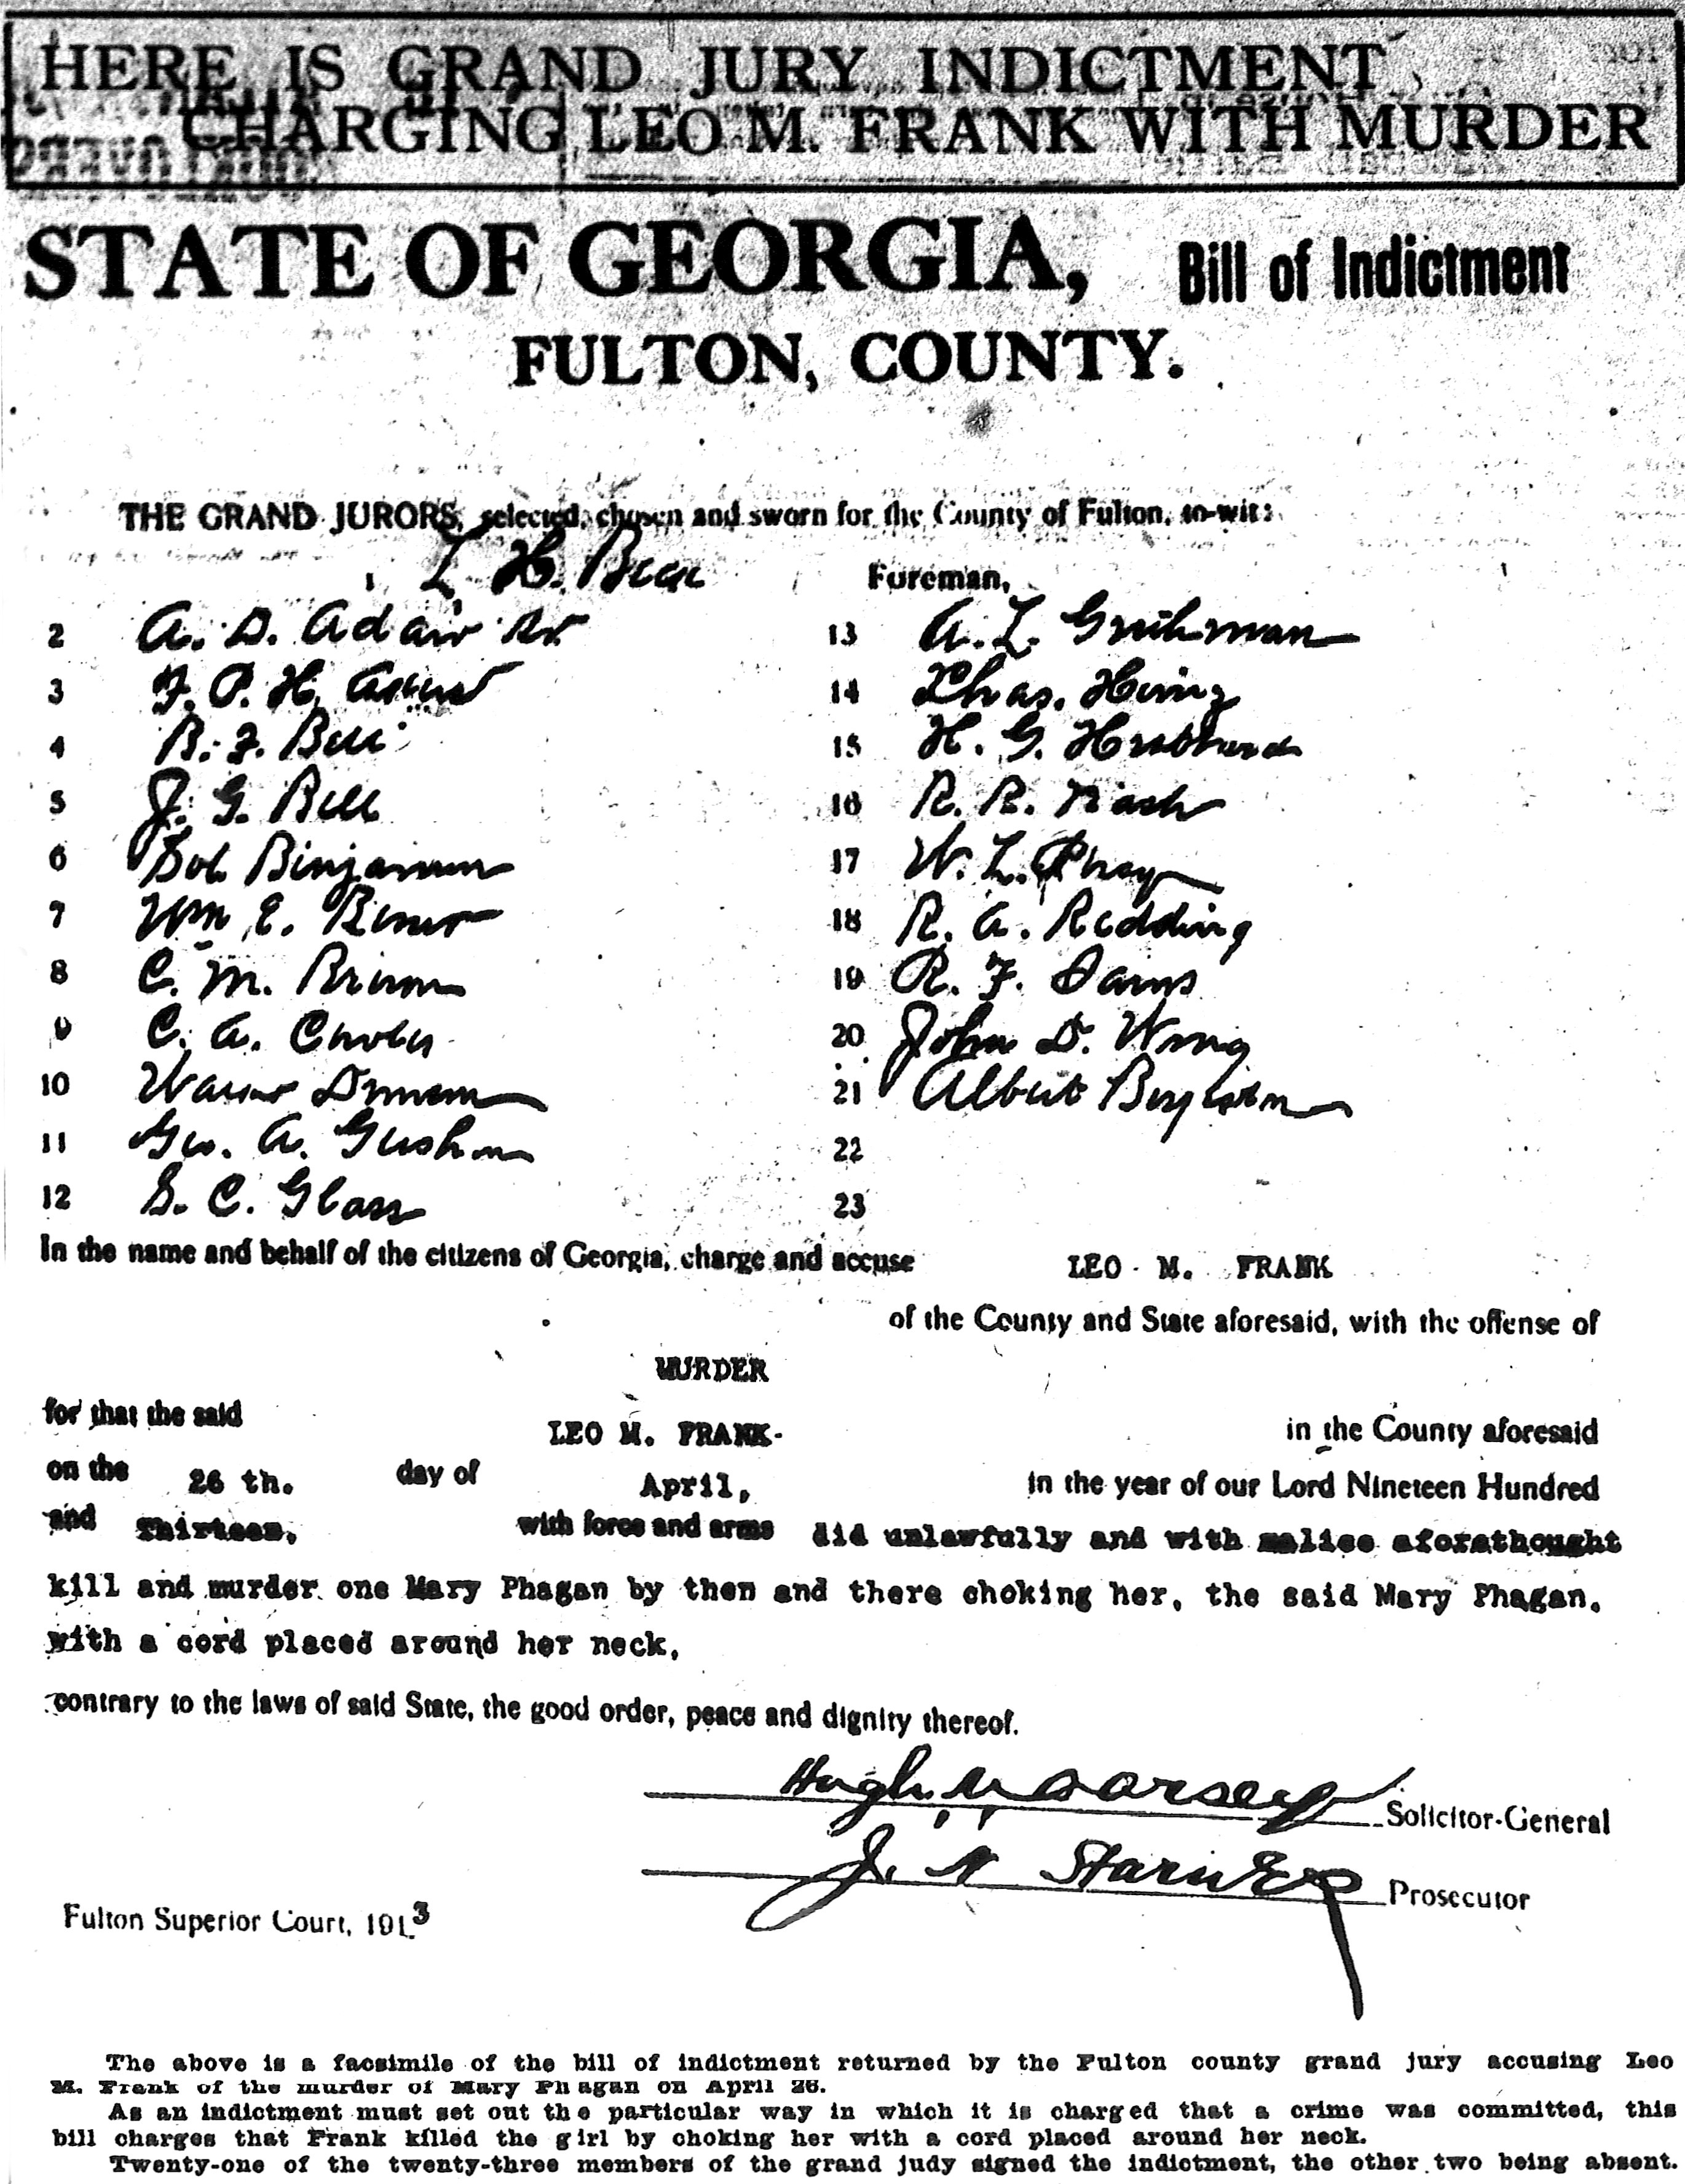 HERE IS GRAND JURY INDICTMENT
CHARGING LEO M. FRANK WITH MURDER
STATE OF GEORGIA, Bill of Indictment
FULTON, COUNTY.
THE GRAND JURORS, selected, chosen and sworn for the County of Fulton, to-wit:
1 L. H. Beck Foreman,
2 A. D. Adair Sr 13 A. L. Guthman
3 F. P. H. 14 Chas. Heinz
4 B. F. Bell 15 H. G. Hubbard
5 J. G. Bell 16 R. R. Nash
6 Sol Binjamin 17 W. L. Percy
7 Wm E. Besser 18 R. A. Redding
8 C. M. Brown 19 R. F. Sams
9 C. A. Cowles 20 John D. Wing
10 Walker Dunson 21 Albert Boylston
11 Geo. A. Gershon 22
12 S. C. Glass 23
In the name and behalf of the citizens of Georgia, charge and accuse LEO M. FRANK
of the County and State aforesaid, with the offense of
MURDER
for that the said LEO M. FRANK- in the County aforesaid
on the 26 th. day of April, in the year of our Lord Nineteen Hundred
and Thirteen, with force and arms did unlawfully and with malice aforethought
kill and murder one Mary Phagan by then and there choking her, the said Mary Phagan,
with a cord placed around her neck,
contrary to the laws of said State, the good order, peace and dignity thereof.
Hugh M Dorsey Solicitor-General
J. N Starnes Prosecutor
Fulton Superior Court, 1913
The above is a facsimile of the bill of indictment returned by the Fulton county grand jury accusing Leo
M. Frank of the murder of Mary Phagan on April 26.
As an indictment must set out the particular way in which it is charged that a crime was committed, this
bill charges that Frank killed the girl by choking her with a cord placed around her neck.
Twenty-one of the twenty-three members of the grand judy signed the indictment, the other two being absent.